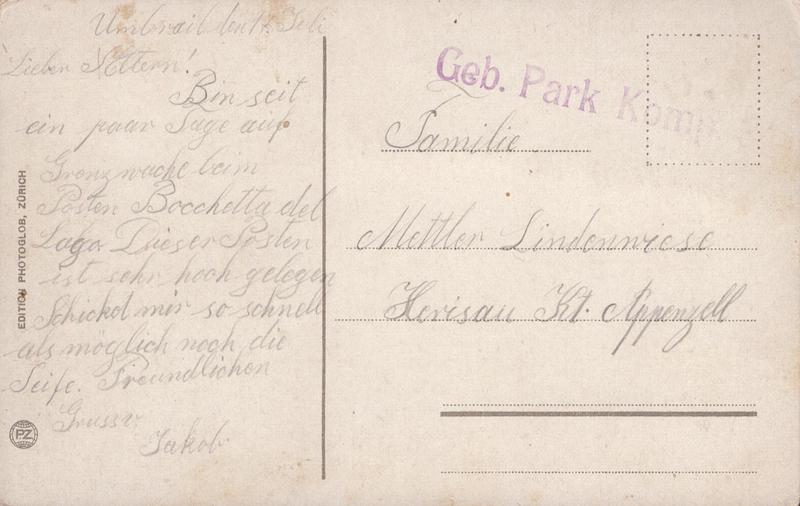 Umbrail den 17. Juli
Lieben Eltern!
Bin seit
ein paar Tage auf
Grenzwache beim
Posten Bocchetta del
Lago Dieser Posten
ist sehr hoch gelegen
Schickt mir so schnell
als möglich noch die
Seife. Freundlichen
Gruss
Jakob
EDITION PHOTOGLOB, ZÜRICH
PZ
Geb. Park Komp.
Familie
Mettler Lindenwiese
Herisau Kt. Appenzell